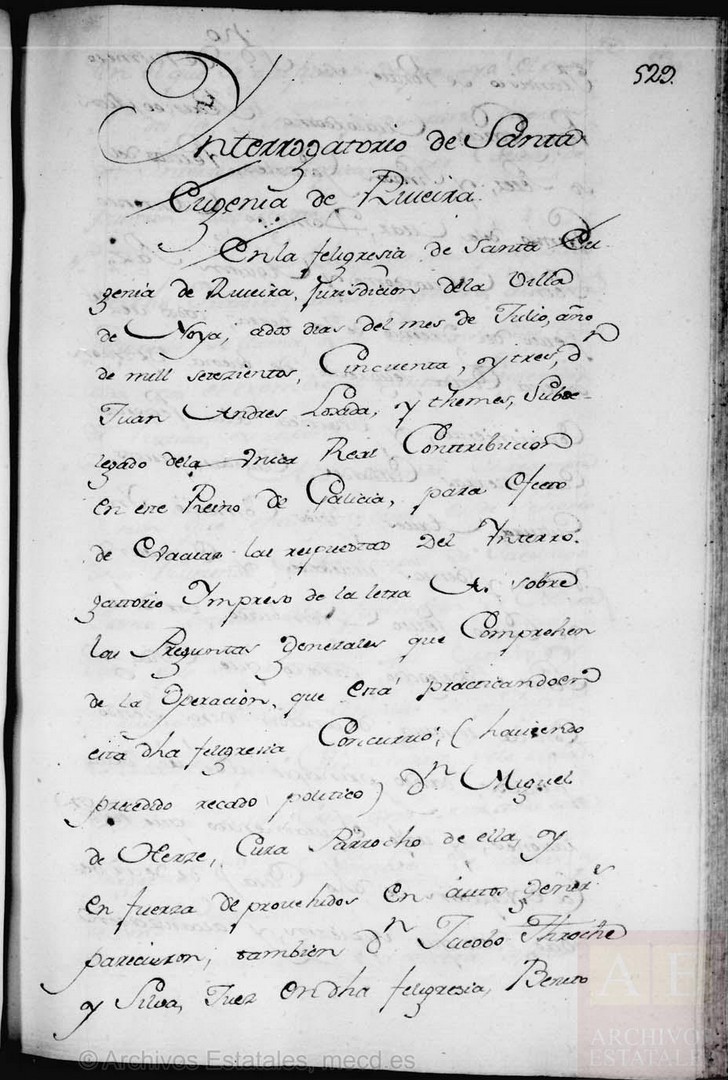 529.
Interrogatorio de Santa
Eugenia de Riveira.
En la feligresia de Santa Eu-
genia de Riveira, Jurisdicion dela Villa
de Noya, ados dias del mes de Julio, año
de mill setezientos, Cinquenta, y tres, Dn
Juan Andres Lozada, y themes, Subde-
legado dela Vnica Real Contribucion
en este Reino de Galicia, para efecto
de Evacuar las respuestas del Ynterro-
gattorio Ympreso de la letra A. sobre
las Preguntas generales que Comprehen
de la Operacion, que está practicandoen
esta dha feligresia Concurrió, (haviendo
prezedido recado politico) Dn Miguel
de Oerze, Cura Parrocho de ella y
en fuerza de provehidos en autos Gener.s
parecieron, tambien Dn Jacobo
y Silva, Juez en dha feligresia, Benito
© Archivos Estatales, mecd.es
AE
ARCHIVOS
ESTATALES